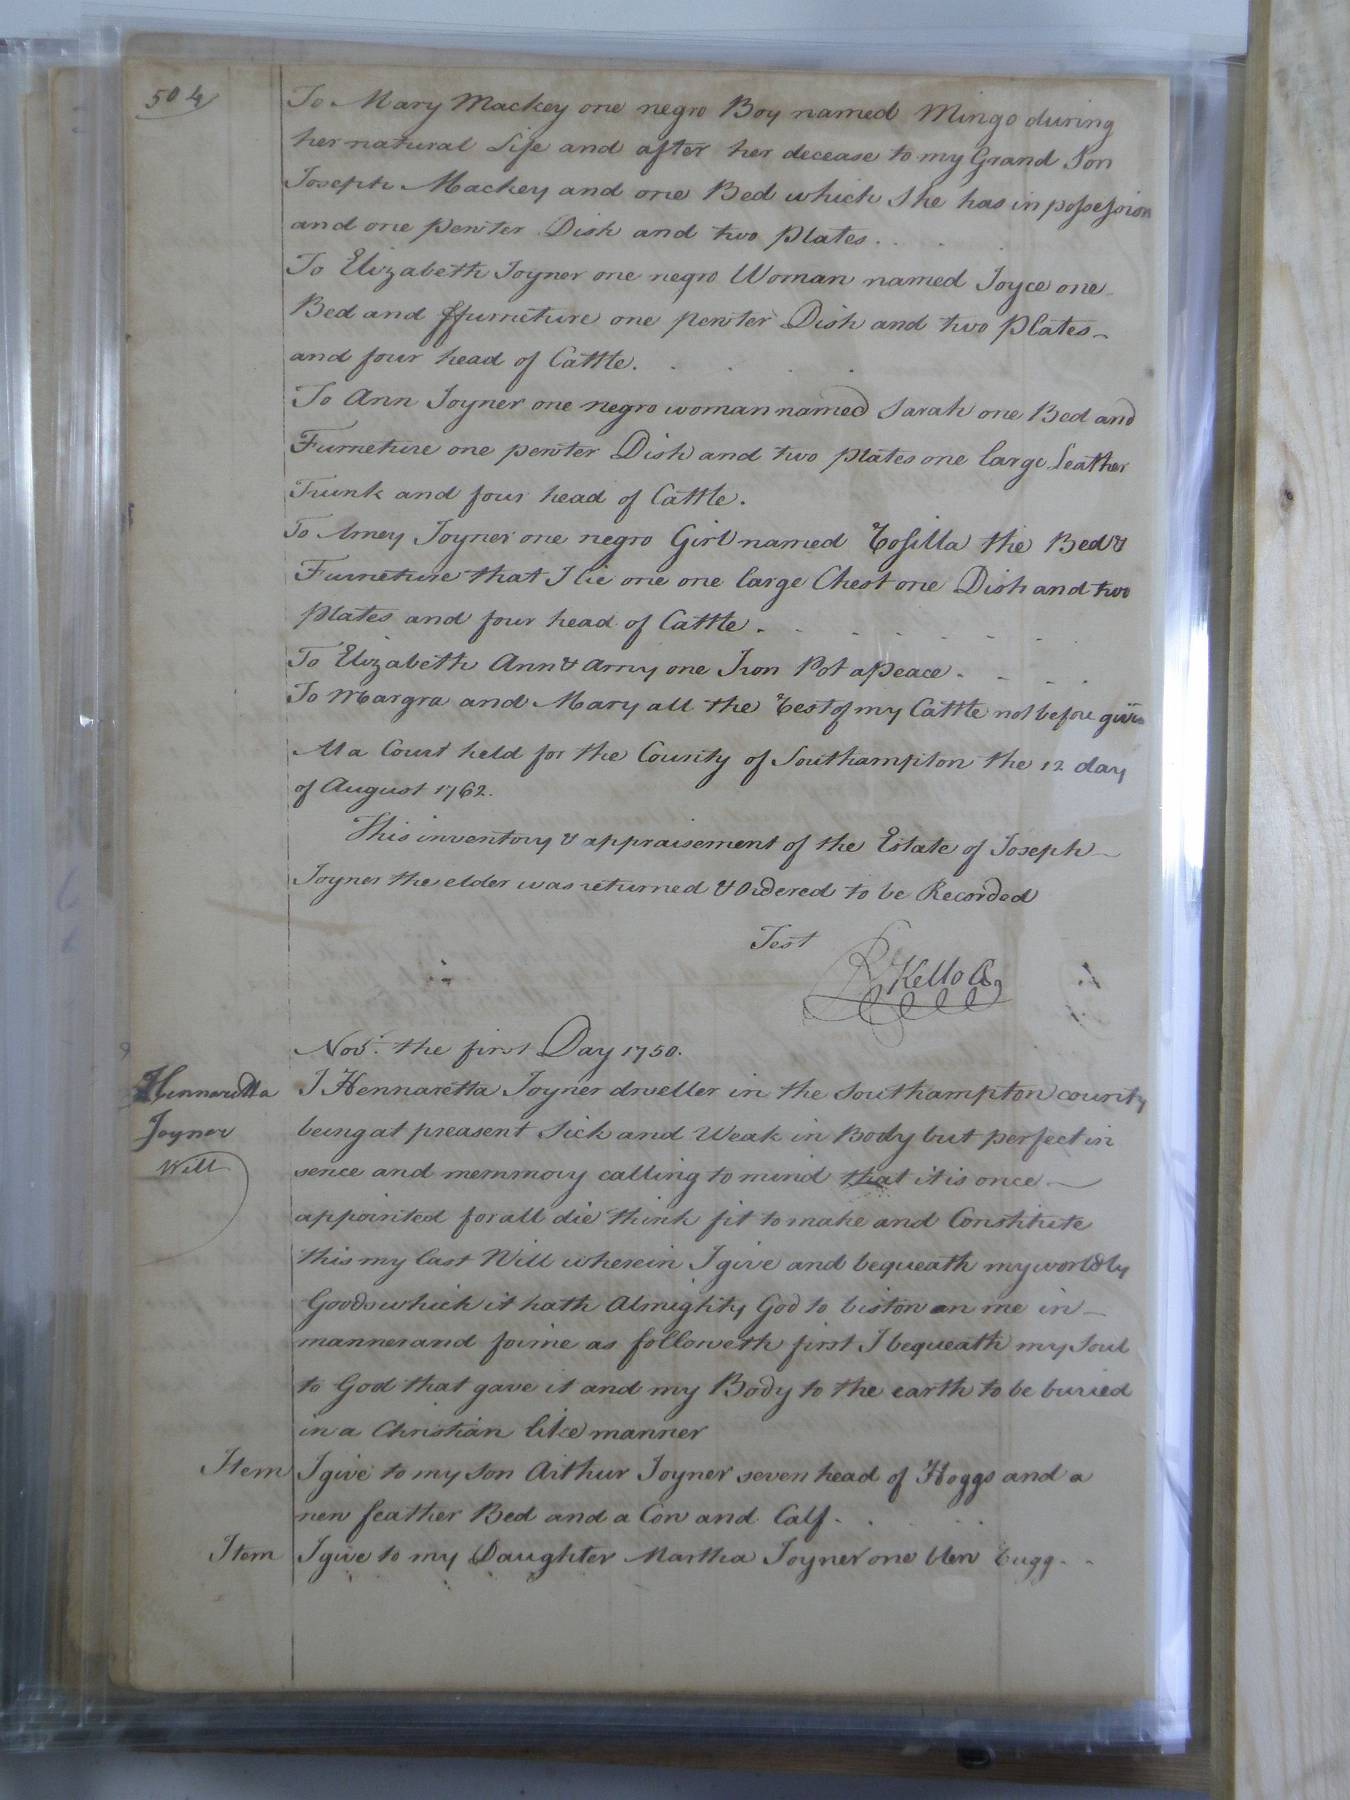 504
To Mary Mackey one negro Boy named Mingo during
her natural Life and after her decease to my Grand Son
Joseph Mackey and one Bed which She has in possession
and one pewter Dish and two plates.
To Elizabeth Joyner one negro Woman named Joyce one
Bed and ffurneture one pewter Dish and two plates
and four head of Cattle.
To Ann Joyner one negro woman named Sarah one Bed and
Furneture one pewter Dish and two plates one large Leather
Trunk and four head of Cattle.
To Amey Joyner one negro Girl named the Bed &
Furneture that I lie one one large Chest one Dish and two
plates and four head of Cattle.
To Elizabeth Ann & Amy one Iron Pot a Peace.
To Margra and Mary all the rest of my Cattle not before given
At a Court held for the County of Southampton the 12 day
of August 1762.
This inventory & appraisement of the Estate of Joseph
Joyner the elder was returned & Ordered to be Recorded
Test
R Kello
Novr. the first Day 1750.
Hennaretta I Hennaretta Joyner dweller in the Southampton county
Joyner being at preasent Sick and Weak in Body but perfect in
Will sence and memmory calling to mind that it is once
appointed for all die think fit to make and Constitute
this my last Will wherein I give and bequeath my worldly
Goods which it hath Almighty God to bistow on me in
manner and forme as followeth first I bequeath my Soul
to God that gave it and my Body to the earth to be buried
in a Christian like manner
Item I give to my Son Arthur Joyner seven head of Hoggs and a
new feather Bed and a Cow and Calf.
Item I give to my Daughter Martha Joyner one new rugg.